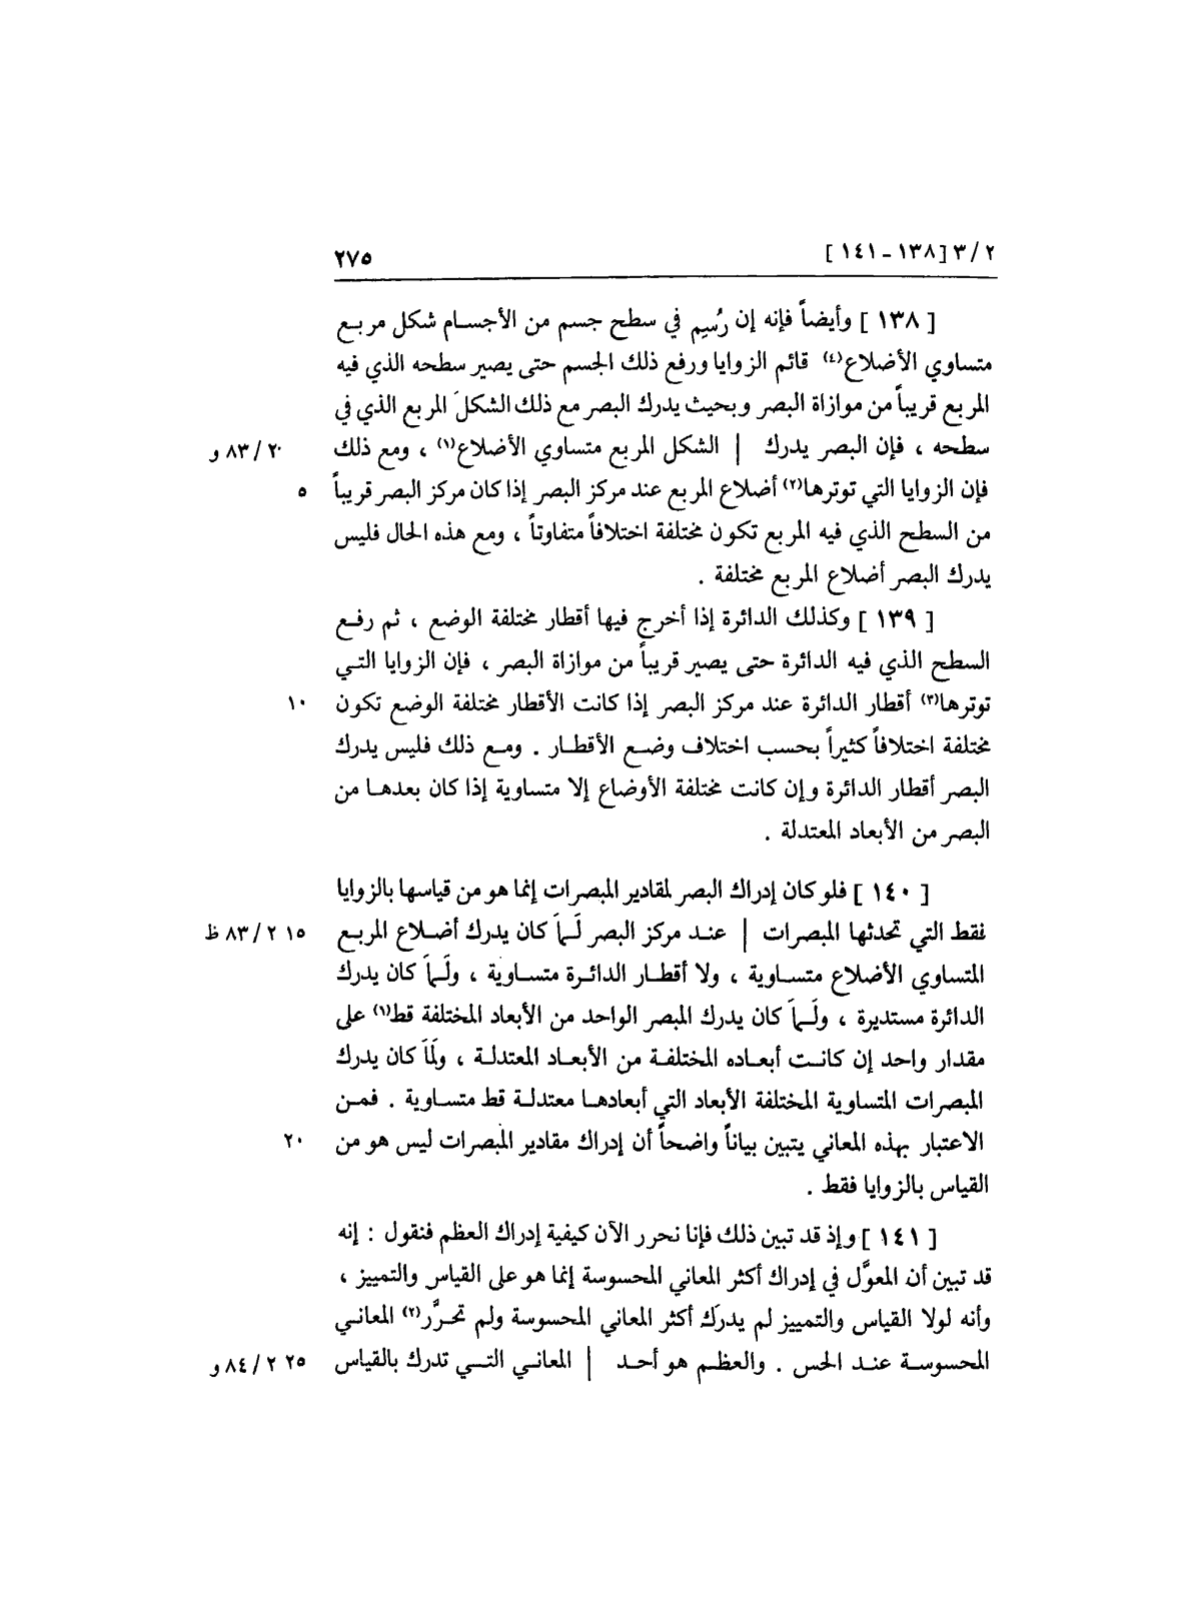 ٢ / ٣ [ ١٣٨ - ١٤١ ] ٢٧٥
[ ١٣٨ ] وأيضاً فإنه إن رُسِم في سطح جسم من الأجسام شكل مربع
متساوي الأضلاع(٤) قائم الزوايا ورفع ذلك الجسم حتى يصير سطحه الذي فيه
المربع قريباً من موازاة البصر وبحيث يدرك البصر مع ذلك الشكلَ المربع الذي في
سطحه ، فإن البصر يدرك | الشكل المربع متساوي الأضلاع(١) ، ومع ذلك ٢٠ / ٨٣ و
فإن الزوايا التي توترها(٢) أضلاع المربع عند مركز البصر إذا كان مركز البصر قريباً ٥
من السطح الذي فيه المربع تكون مختلفة اختلافاً متفاوتاً ، ومع هذه الحال فليس
يدرك البصر أضلاع المربع مختلفة .
[ ١٣٩ ] وكذلك الدائرة إذا أخرج فيها أقطار مختلفة الوضع ، ثم رفع
السطح الذي فيه الدائرة حتى يصير قريباً من موازاة البصر ، فإن الزوايا التي
توترها(٣) أقطار الدائرة عند مركز البصر إذا كانت الأقطار مختلفة الوضع تكون ١٠
مختلفة اختلافاً كثيراً بحسب اختلاف وضع الأقطار . ومع ذلك فليس يدرك
البصر أقطار الدائرة وإن كانت مختلفة الأوضاع إلا متساوية إذا كان بعدها من
البصر من الأبعاد المعتدلة .
[ ١٤٠ ] فلو كان إدراك البصر لمقادير المبصرات إنما هو من قياسها بالزوايا
فقط التي تحدثها المبصرات | عند مركز البصر لَما كان يدرك أضلاع المربع ١٥ ٢ / ٨٣ ظ
المتساوي الأضلاع متساوية ، ولا أقطار الدائرة متساوية ، ولَما كان يدرك
الدائرة مستديرة ، ولَما كان يدرك المبصر الواحد من الأبعاد المختلفة قط(١) على
مقدار واحد إن كانت أبعاده المختلفة من الأبعاد المعتدلة ، ولَما كان يدرك
المبصرات المتساوية المختلفة الأبعاد التي أبعادها معتدلة قط متساوية . فمن
الاعتبار بهذه المعاني يتبين بياناً واضحاً أن إدراك مقادير المبصرات ليس هو من ٢٠
القياس بالزوايا فقط .
[ ١٤١ ] وإذ قد تبين ذلك فإنا نحرر الآن كيفية إدراك العظم فنقول : إنه
قد تبين أن المعوَّل في إدراك أكثر المعاني المحسوسة إنما هو على القياس والتمييز ،
وأنه لولا القياس والتمييز لم يدرَك أكثر المعاني المحسوسة ولم تحرَّر(٢) المعاني
المحسوسة عند الحس . والعظم هو أحد | المعاني التي تدرك بالقياس ٢٥ ٢ / ٨٤ و